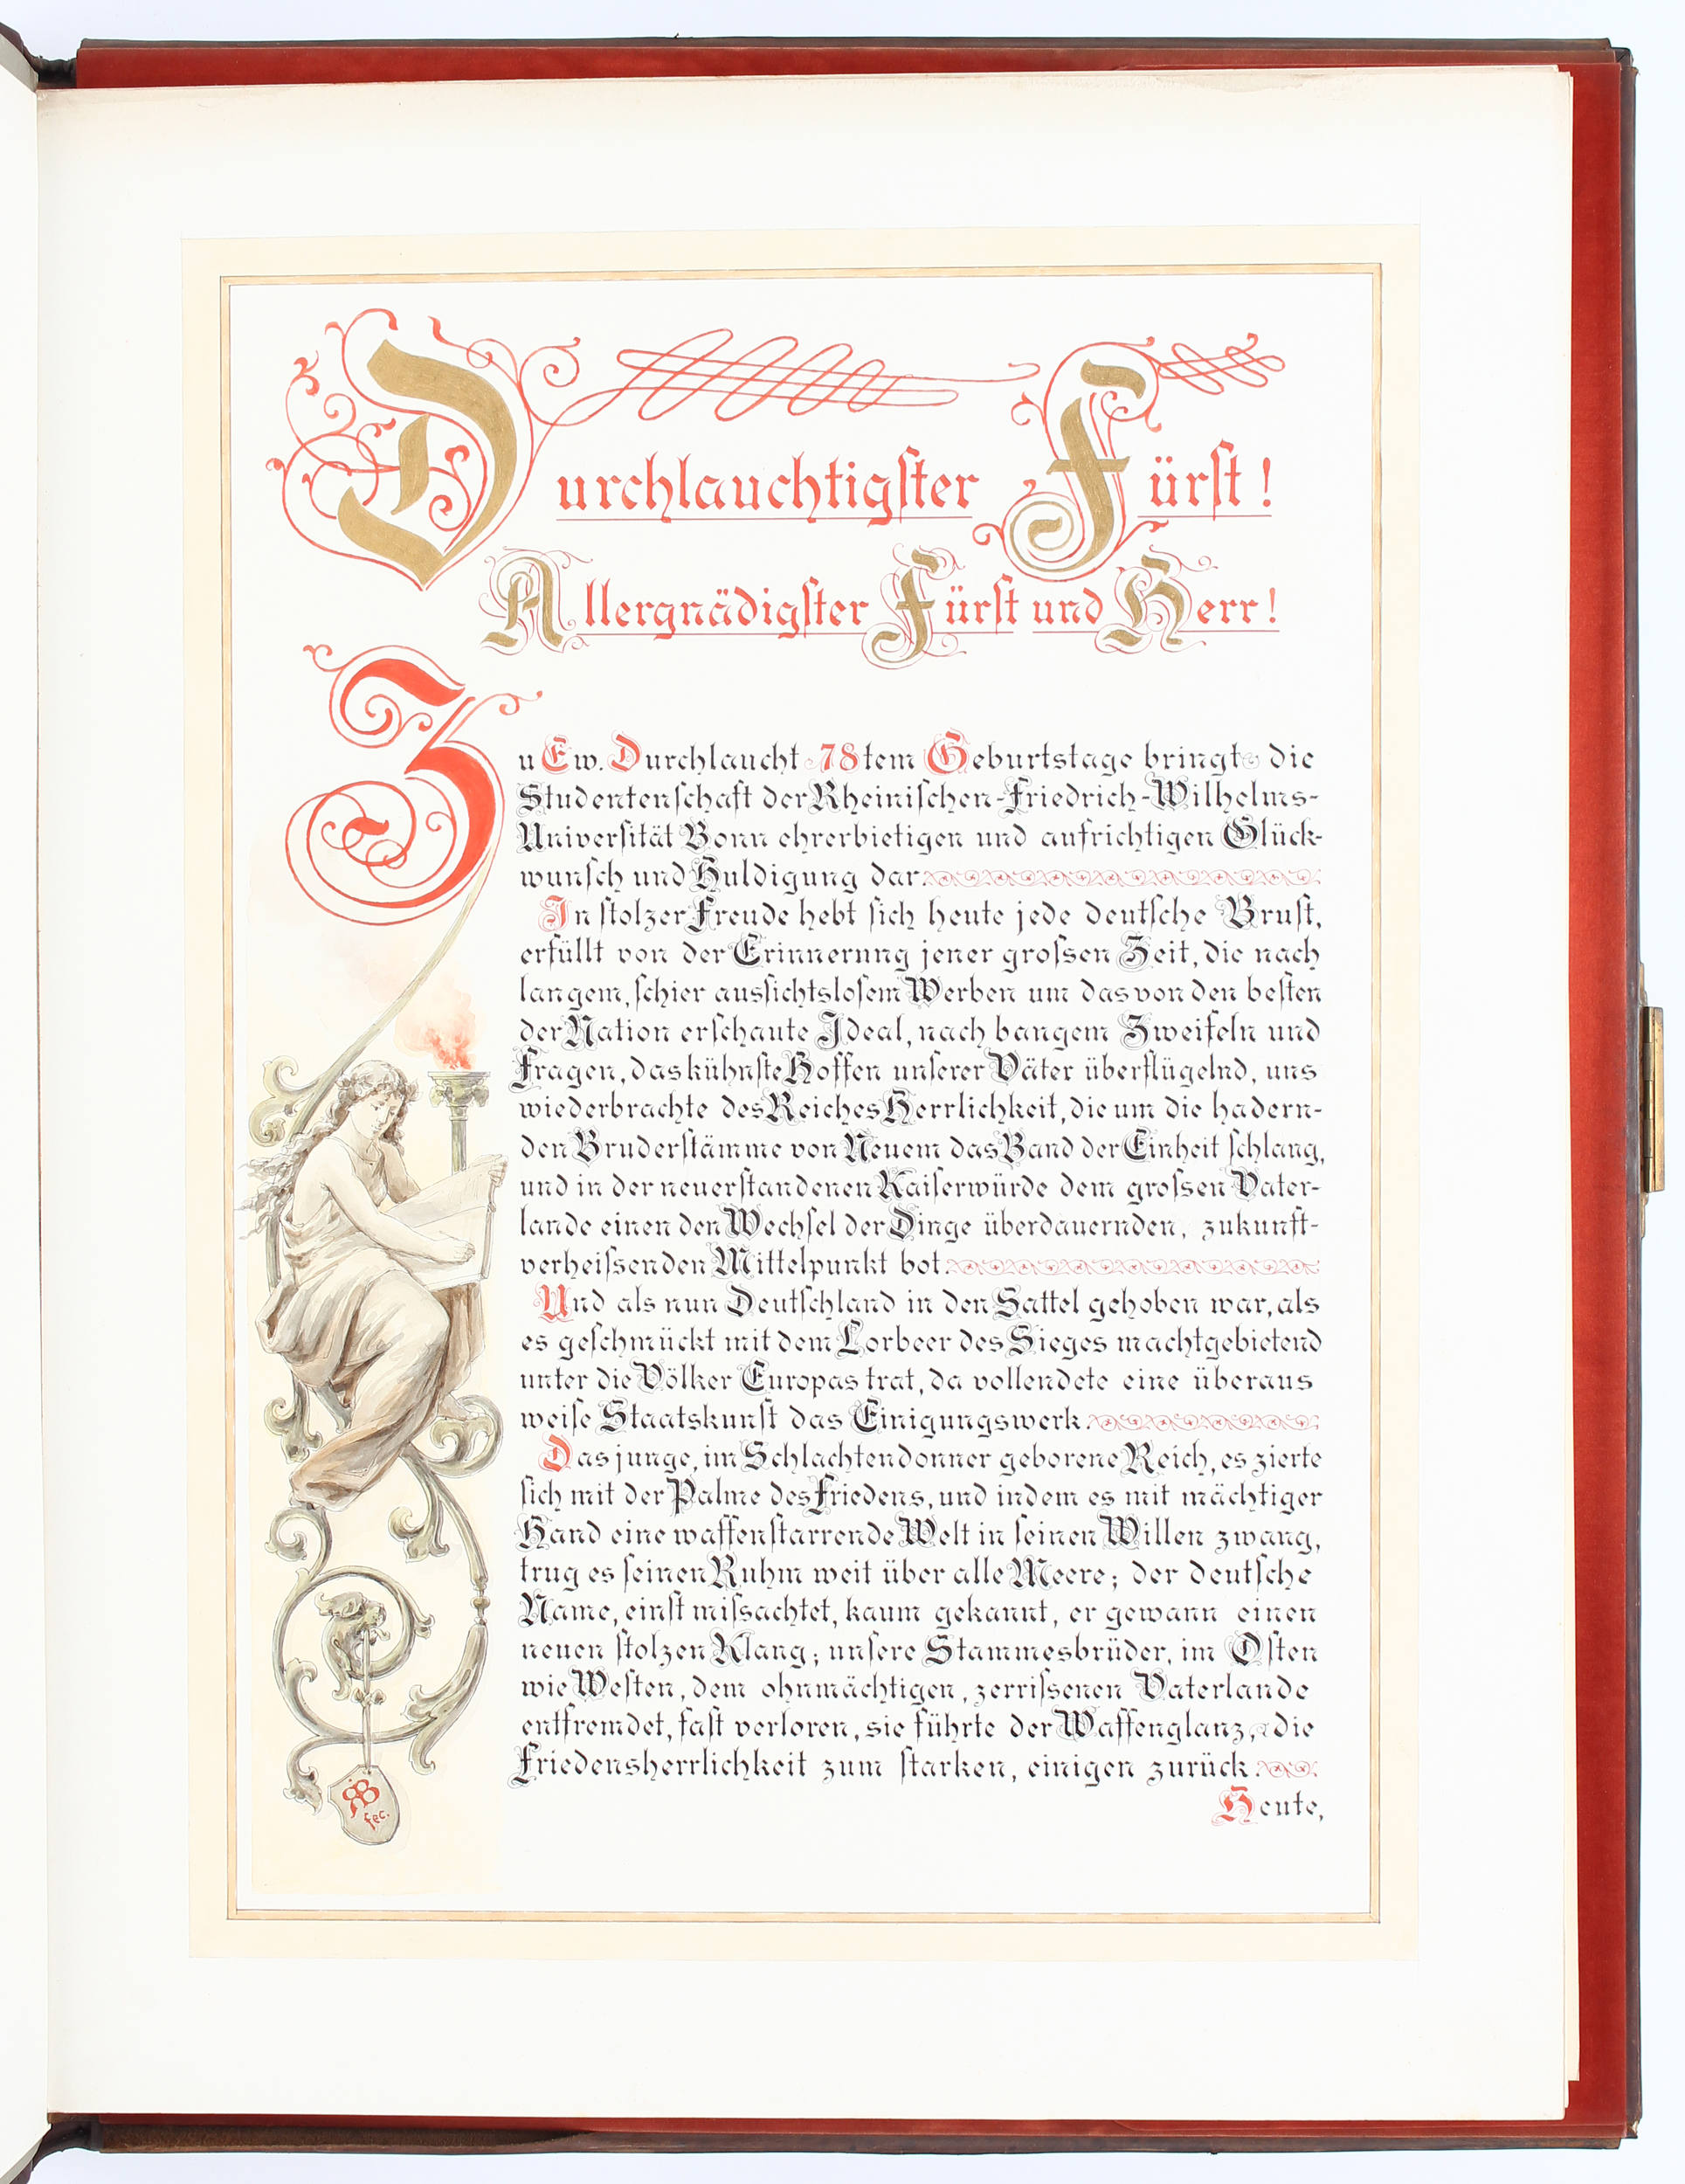 Durchlauchtigster Fürſt!
Allergnädigſter Fürſt und Herr!
Zu Ew. Durchlaucht 78tem Geburtstage bringt die
Studentenſchaft der Rheiniſchen-Friedrich-Wilhelms-
Univerſität Bonn ehrerbietigen und aufrichtigen Glück-
wunſch und Huldigung dar.
In ſtolzer Freude hebt ſich heute jede deutſche Bruſt,
erfüllt von der Erinnerung jener groſsen Zeit, die nach
langem, ſchier ausſichtsloſem Werben um das von den beſten
der Nation erſchaute Ideal, nach bangem Zweifeln und
Fragen, das kühnſte Hoffen unſerer Väter überflügelnd, uns
wiederbrachte des Reiches Herrlichkeit, die um die hadern-
den Bruderſtämme von Neuem das Band der Einheit ſchlang,
und in der neuerſtandenen Kaiſerwürde dem groſsen Vater-
lande einen den Wechſel der Dinge überdauernden, zukunft-
verheiſsenden Mittelpunkt bot.
Und als nun Deutſchland in den Sattel gehoben war, als
es geſchmückt mit dem Lorbeer des Sieges machtgebietend
unter die Völker Europas trat, da vollendete eine überaus
weiſe Staatskunſt das Einigungswerk.
Das junge, im Schlachtendonner geborene Reich, es zierte
ſich mit der Palme des Friedens, und indem es mit mächtiger
Hand eine waffenſtarrende Welt in ſeinen Willen zwang,
trug es ſeinen Ruhm weit über alle Meere; der deutſche
Name, einſt miſsachtet, kaum gekannt, er gewann einen
neuen ſtolzen Klang; unſere Stammesbrüder, im Oſten
wie Weſten, dem ohnmächtigen, zerriſsenen Vaterlande
entfremdet, faſt verloren, sie führte der Waffenglanz, die
Friedensherrlichkeit zum ſtarken, einigen zurück.
Heute,
RB
fec.